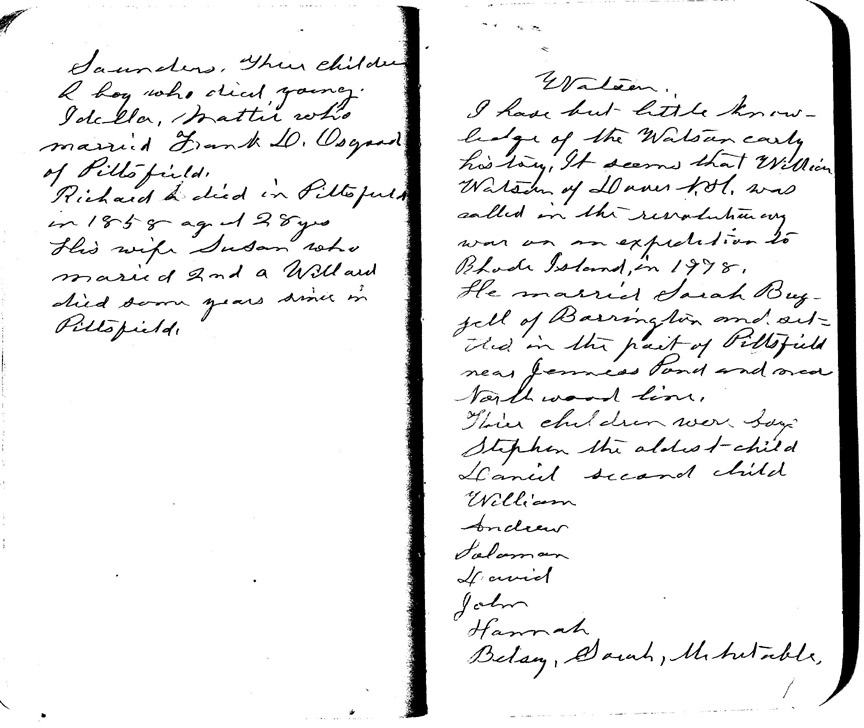 Saunders. Thier children
A boy who died young.
Idella, Mattie who
married Frank D. Osgood
of Pittsfield.
Richard died in Pittsfield
in 1858 aged 28 yrs
His wife Susan who
maried 2nd a Willard
died some years since in
Pittsfield.
Watson.
I have but little know-
ledge of the Watson early
history. It seems that William
Watson of Dover N.H. was
called in the revolutionary
war on an expedition to
Rhode Island, in 1778.
He married Sarah Buz-
zell of Barrington and set-
tled in the part of Pittsfield
near Jenness Pond and near
Northwood line.
Thier children were boys
Stephen the oldest child
Daniel second child
William
Andrew
Soloman
David
John
Hannah
Betsey, Sarah, Mehetable,